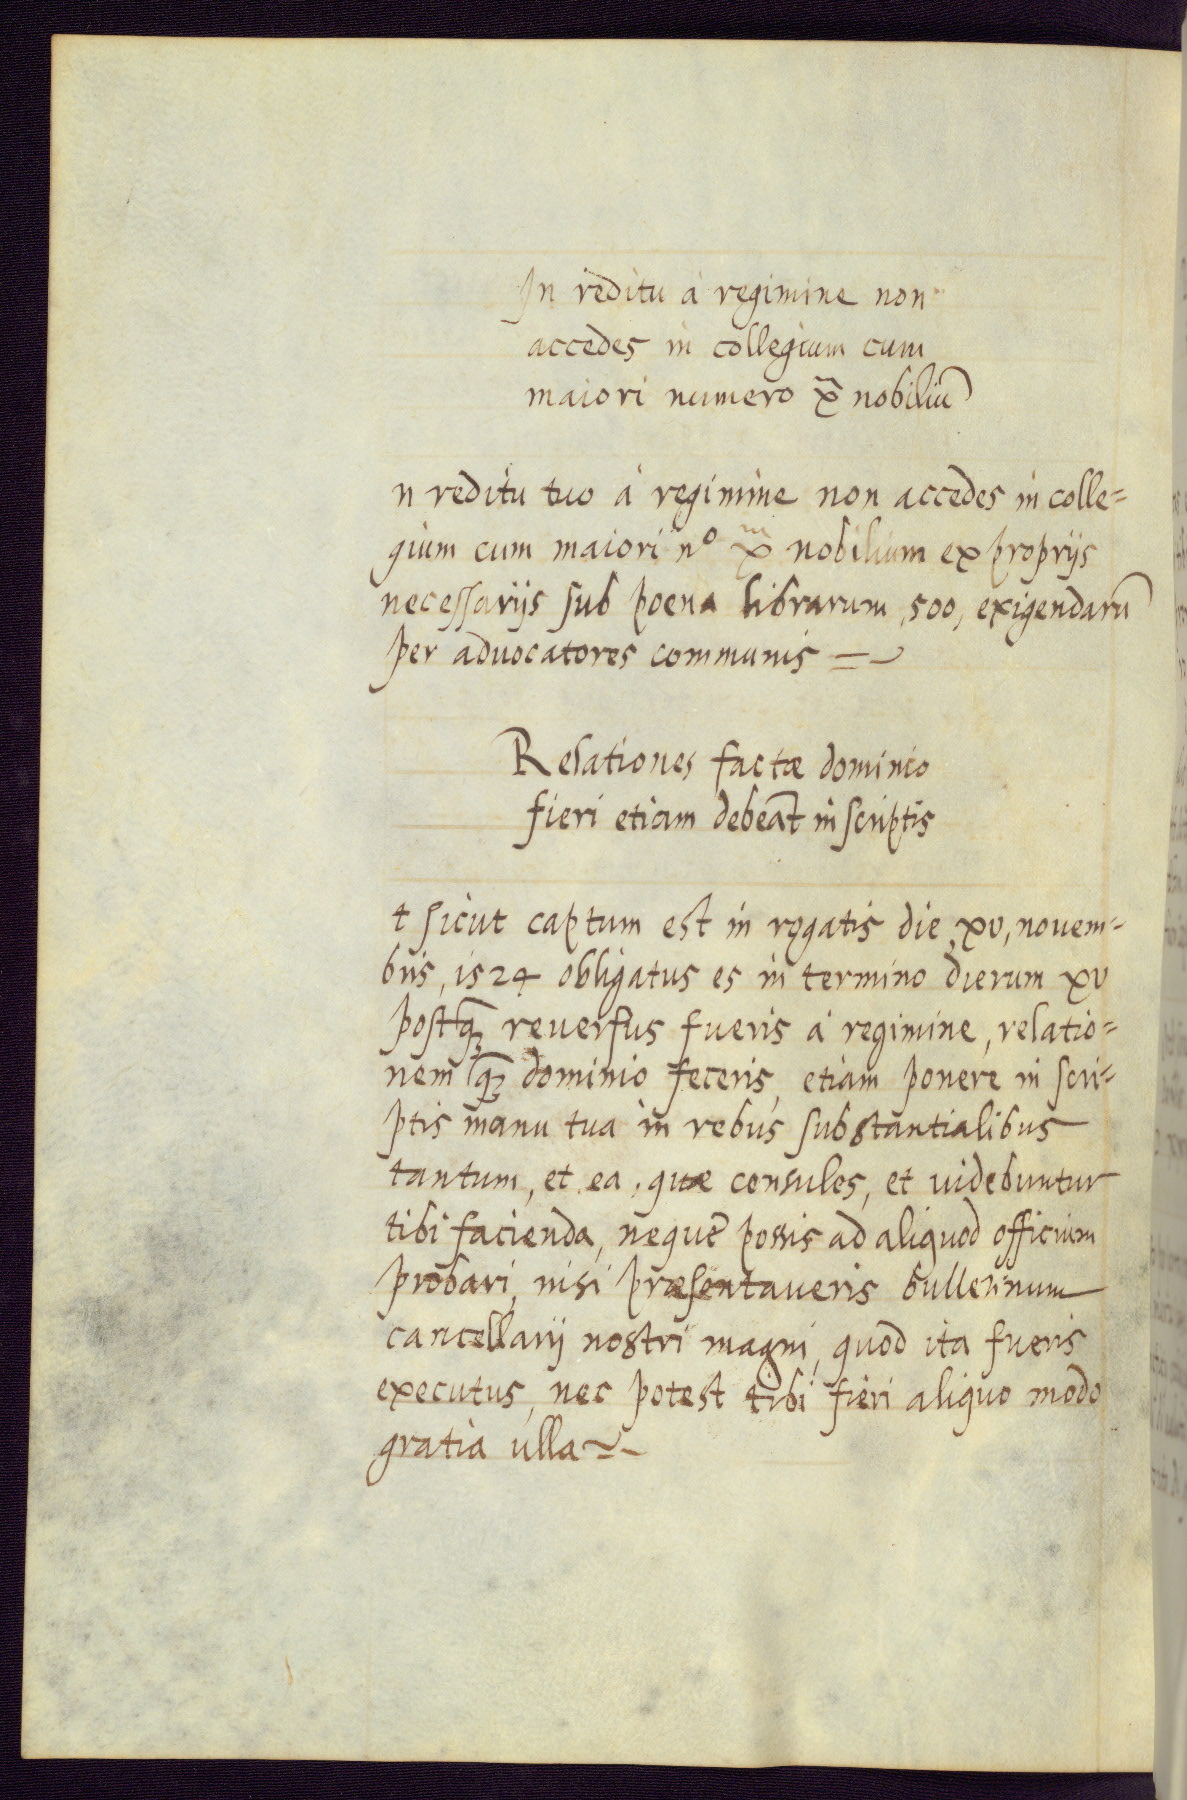 In reditu à regimine non
accedes in collegium cum
maiori numero x̃ nobiliũ
n reditu tuo à regimine non accedes in colle=
gium cum maiori nº x nobilium ex proprijs
necessarijs sub poena librarum, 500, exigendarũ
per advocatores communis
Relationes factæ dominio
fieri etiam debeãt in scriptis
t sicut captum est in rogatis die, xv, novem-
bris, 1524 obligatus es in termino dierum xv
postq̃ reversus fueris à regimine, relatio=
nem q̃ dominio feceris, etiam ponere in scri=
ptis manu tua in rebus substantialibus
tantum, et ea, quæ consules, et videbuntur
tibi facienda, neque possis ad aliquod officium
probari, nisi præsentaveris bulletinum
cancellarij nostri magni, quod ita fueris
executus, nec potest tibi fieri aliquo modo
gratia ulla